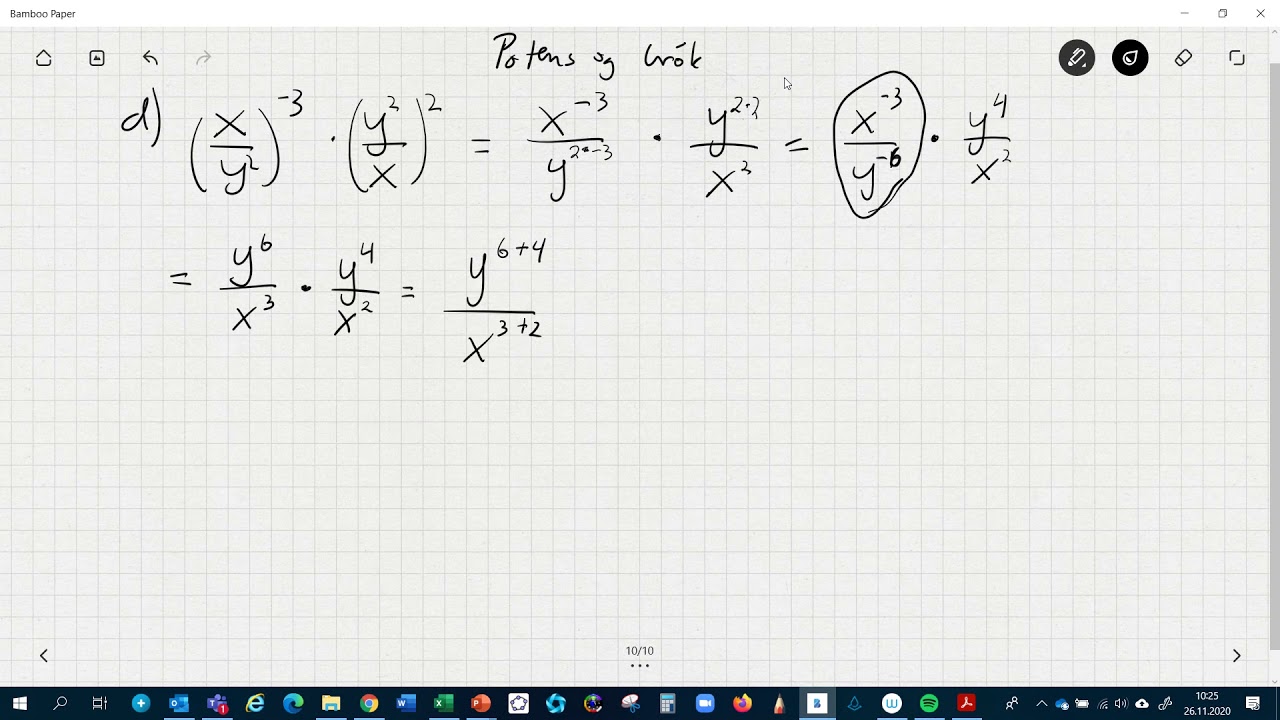 Bamboo Paper
Potens og brók
d) (x/y^2)^-3 · (y^2/x)^2 = x^-3/y^2·-3 · y^2·2/x^2 = x^-3/y^-6 · y^4/x^2
= y^6/x^3 · y^4/x^2 = y^6+4/x^3+2
10/10
10:25
26.11.2020